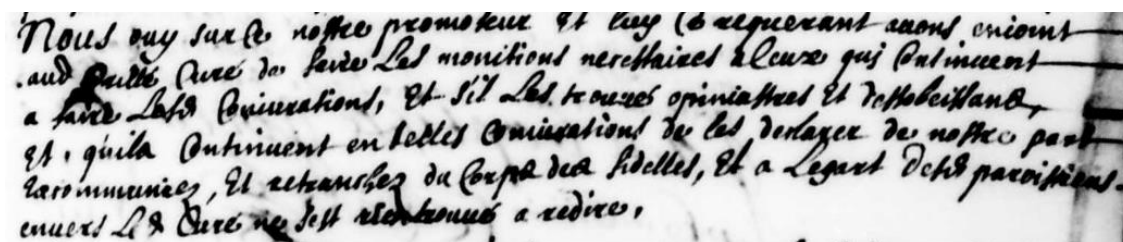 Nous ouy sur ce nostre promoteur et luy ce requerant avons enioint
aud Curé de faire Les monitions necessaires a Ceux qui Continuent
a faire Lesd Coniurations, Et s'il Les trouves opiniastres Et desobeissans,
Et, quils Continuent en telles Coniurations de les declarer de nostre part
Excommuniez, Et retranchez du Corps des fidelles, Et a Legart desd paroissiens
envers Led Curé ne sest rien trouvé a redire,